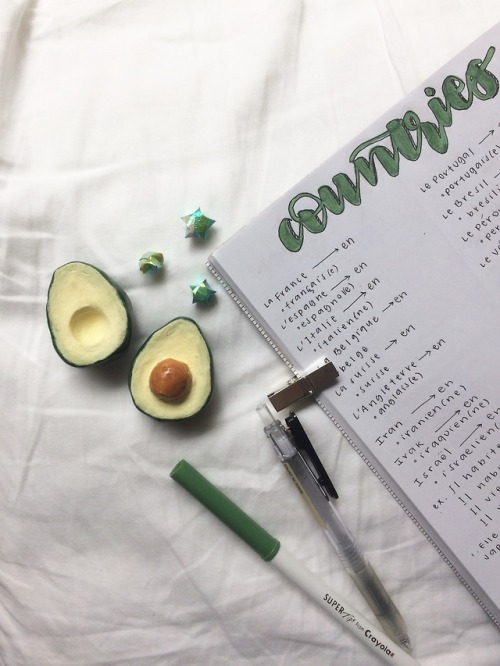 countries
la France → en
• français(e)
L'Espagne → en
• espagnol(e)
L'Italie → en
• italien(ne)
Belgique → en
belge
La suisse → en
• suisse
L'Angleterre → en
anglais(e)
Iran → en
• iranien(ne)
Irak → en
• iraquien(ne)
Israël → en
• israelien(ne)
ex. Il habi
Il hab
Il v
Elle
Le Portugal →
• portugais(e)
Le Brésil →
• brésil
Le Pér
• pér
Le
SUPER Tips from Crayola